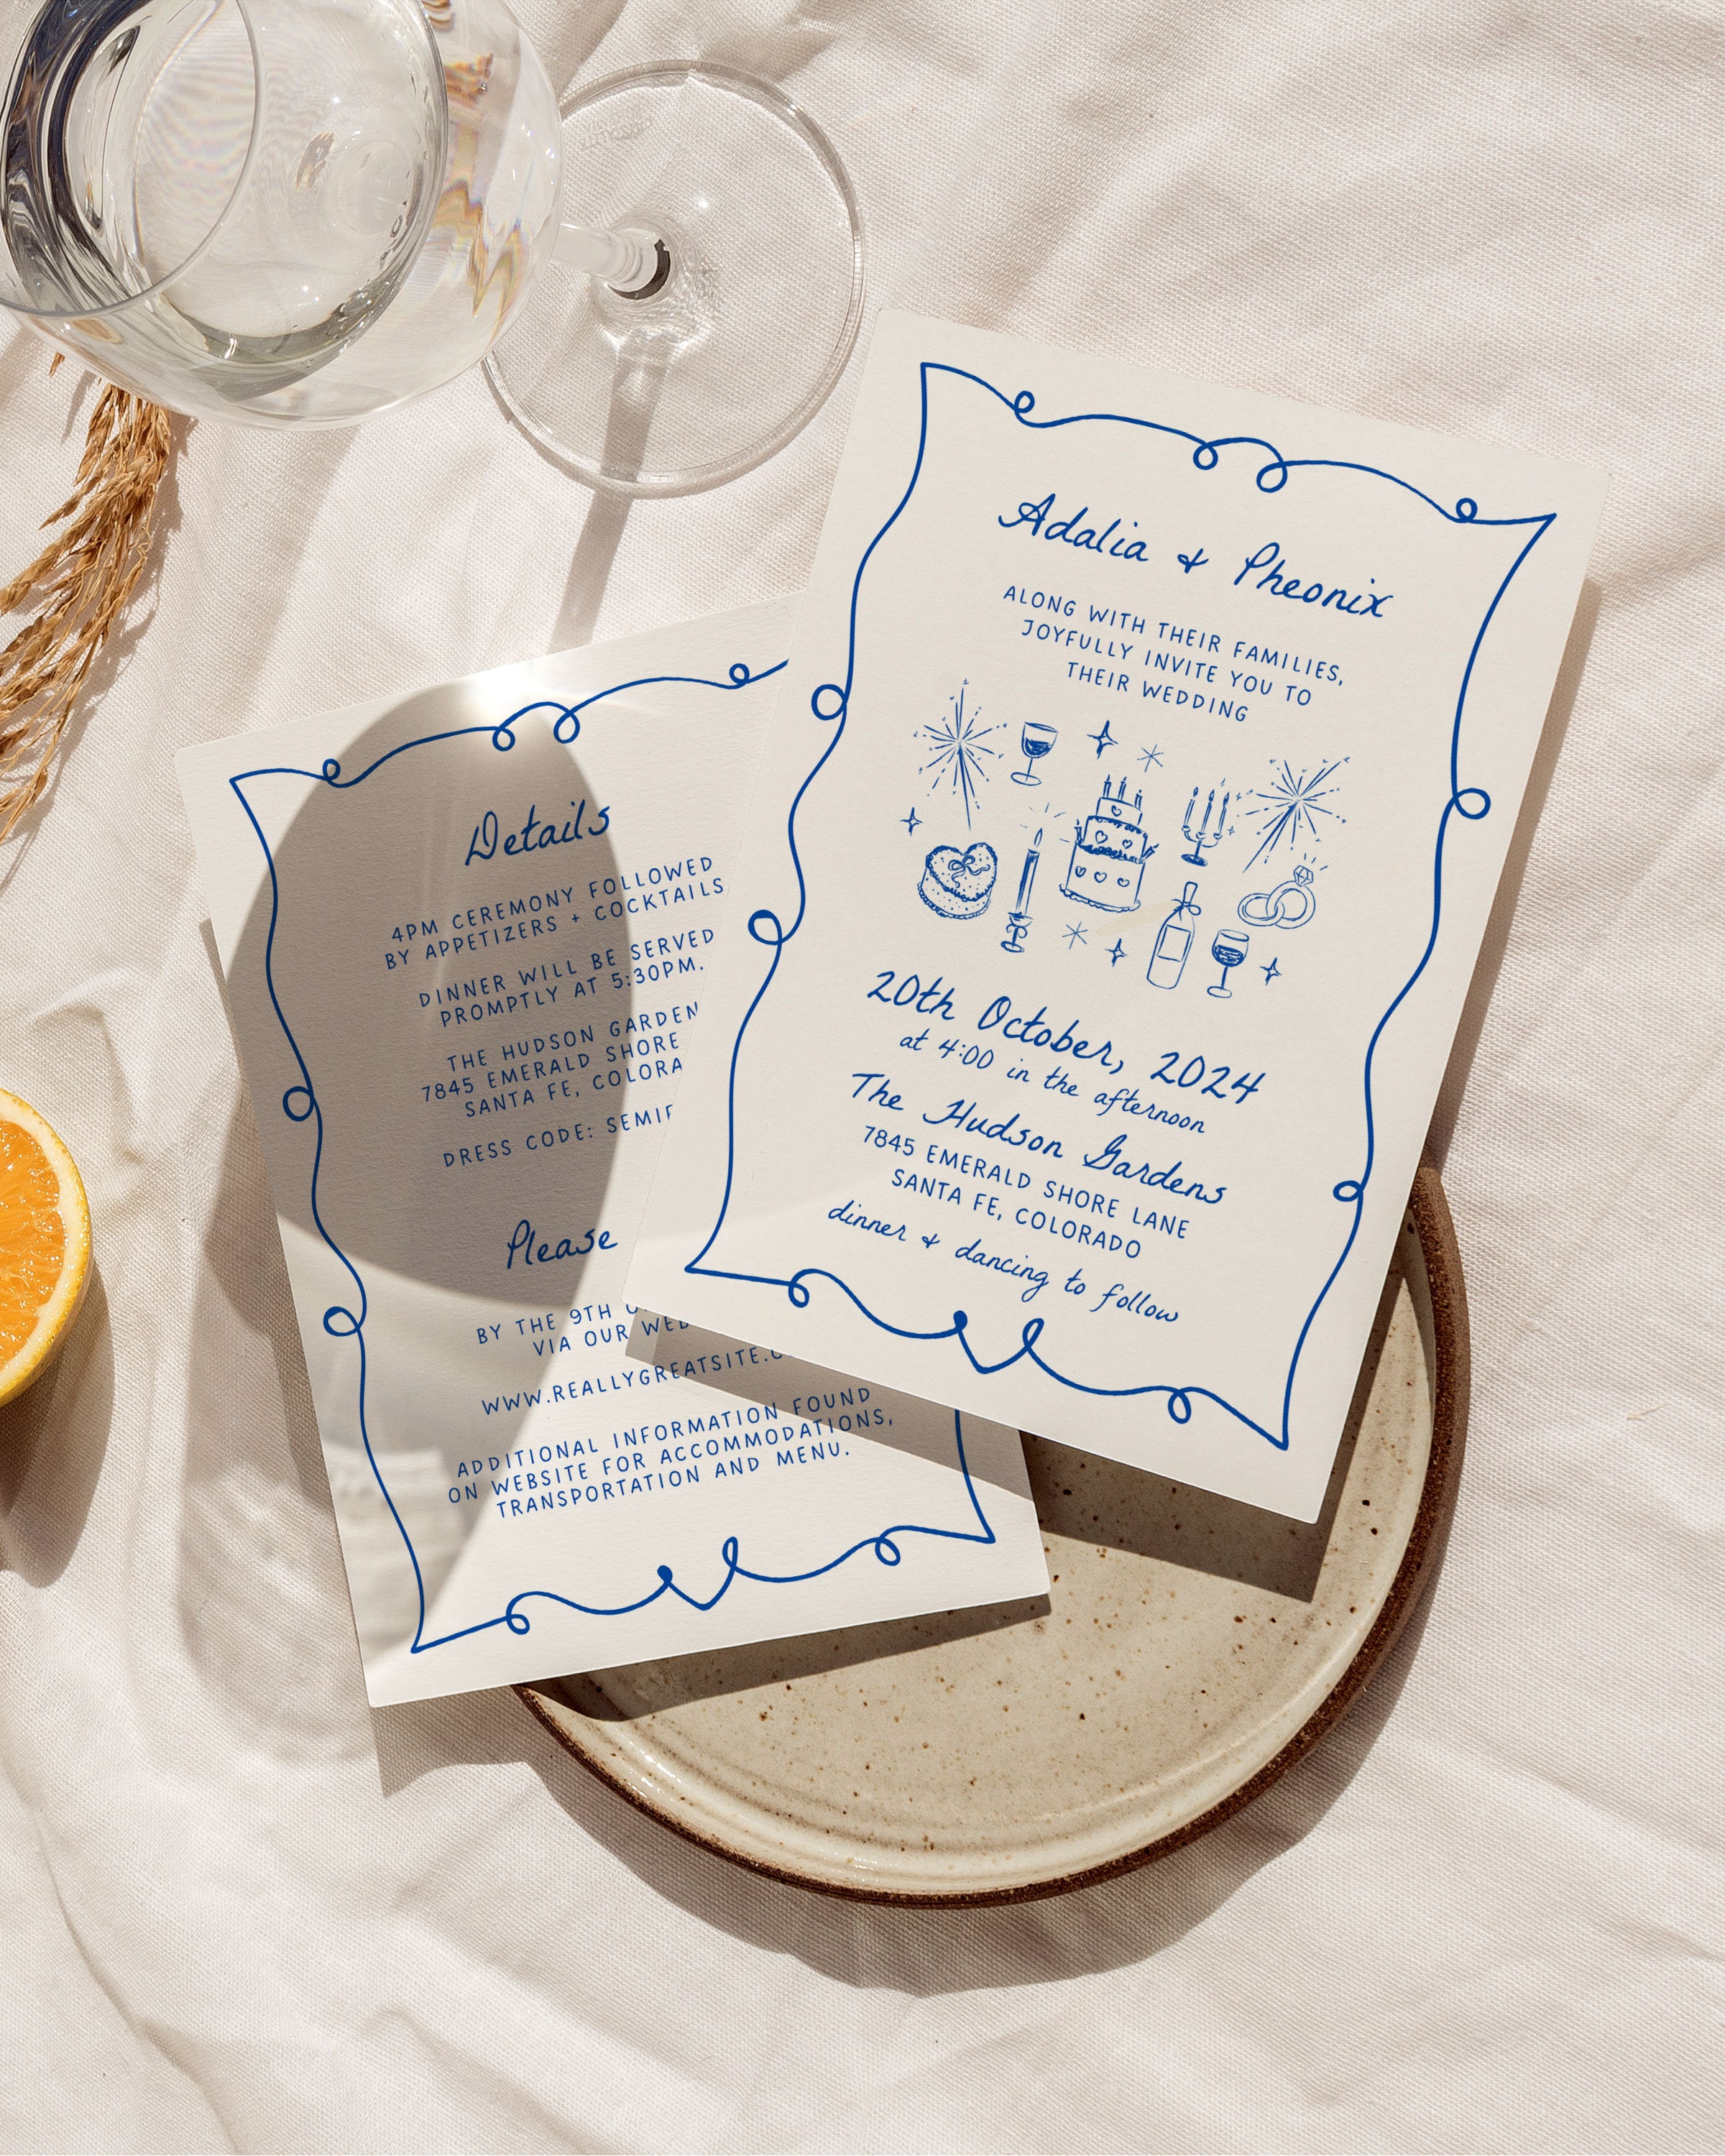 Adalia & Pheonix
ALONG WITH THEIR FAMILIES,
JOYFULLY INVITE YOU TO
THEIR WEDDING
20th October, 2024
at 4:00 in the afternoon
The Hudson Gardens
7845 EMERALD SHORE LANE
SANTA FE, COLORADO
dinner & dancing to follow
Details
4PM CEREMONY FOLLOWED
BY APPETIZERS + COCKTAILS
DINNER WILL BE SERVED
PROMPTLY AT 5:30PM.
THE HUDSON GARDEN
7845 EMERALD SHORE
SANTA FE, COLORA
DRESS CODE: SEMI
Please
BY THE 9TH
VIA OUR WEB
WWW.REALLYGREATSITE.
ADDITIONAL INFORMATION FOUND
ON WEBSITE FOR ACCOMMODATIONS,
TRANSPORTATION AND MENU.